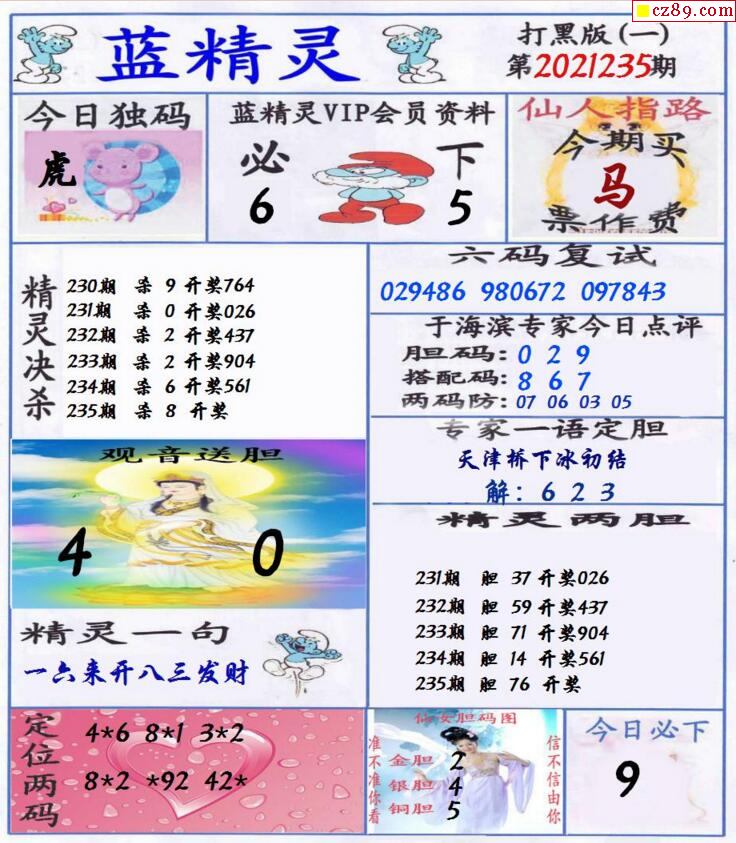 cz89.com
蓝精灵
打黑版(一)
第2021235期
今日独码
虎
蓝精灵VIP会员资料
必 下
6 5
仙人指路
今期买
马
票作费
精灵决杀
230期 杀 9 开奖764
231期 杀 0 开奖026
232期 杀 2 开奖437
233期 杀 2 开奖904
234期 杀 6 开奖561
235期 杀 8 开奖
六码复试
029486 980672 097843
于海滨专家今日点评
胆码: 0 2 9
搭配码: 8 6 7
两码防: 07 06 03 05
专家一语定胆
天津桥下冰初结
解: 6 2 3
观音送胆
4 0
精灵两胆
231期 胆 37 开奖026
232期 胆 59 开奖437
233期 胆 71 开奖904
234期 胆 14 开奖561
235期 胆 76 开奖
精灵一句
一六来开八三发财
定位两码
4*6 8*1 3*2
8*2 *92 42*
仙女胆码图
准不准你看
金胆 2
银胆 4
铜胆 5
信不信由你
今日必下
9